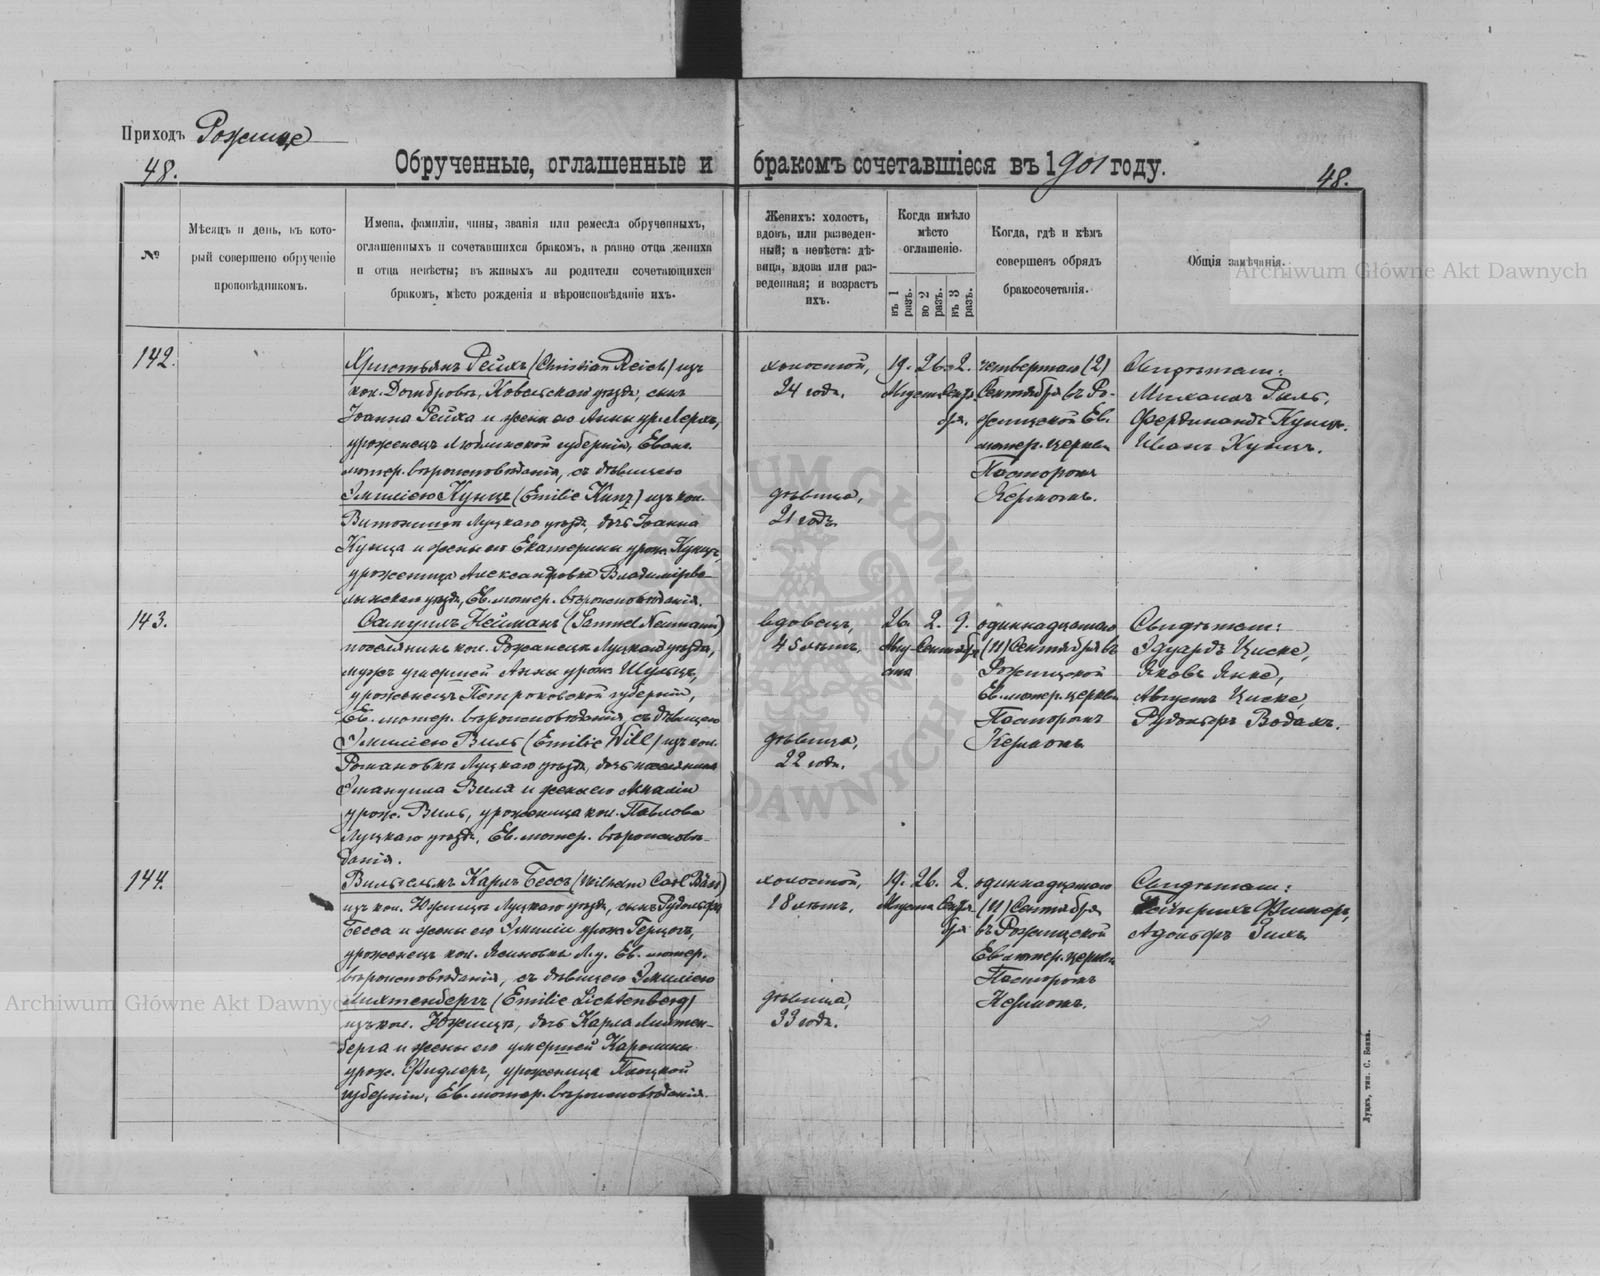 Приходъ Рожище
48.
Обрученные, оглашенные и бракомъ сочетавшіеся въ 1901 году.
48.
№
Мѣсяцъ и день, въ кото-
рый совершено обрученіе
проповѣдникомъ.
Имена, фамиліи, чины, званія или ремесла обрученныхъ,
оглашенныхъ и сочетавшихся бракомъ, а равно отца жениха
и отца невѣсты; въ живыхъ ли родители сочетающихся
бракомъ, мѣсто рожденія и вѣроисповѣданіе ихъ.
Женихъ: холостъ,
вдовъ, или разведен-
ный; а невѣста: дѣ-
вица, вдова или раз-
веденная; и возрастъ
ихъ.
Когда имѣло
мѣсто
оглашеніе.
въ 1 разъ.
во 2 разъ.
въ 3 разъ.
Когда, гдѣ и кѣмъ
совершенъ обрядъ
бракосочетанія.
Общія замѣчанія.
Archiwum Główne Akt Dawnych
142.
Христьянъ Рейхъ (Christian Reich) изъ
кол. Домбровы, Ковельскаго уѣзда, сынъ
Іоанна Рейха и жены его Анны ур. Лерхъ,
уроженецъ Люблинской губерніи, Еванг.
лютер. вѣроисповѣданія, съ дѣвицею
Эмиліею Кунцъ (Emilie Kunz) изъ кол.
Витонижъ Луцкаго уѣзда, дочь Іоанна
Кунца и жены его Екатерины урож. Кунцъ,
уроженица Александровки Владимірво-
лынскаго уѣзда, Ев. лютер. вѣроисповѣданія.
холостой,
24 года.
дѣвица,
21 года.
19. 26. 2.
Августа Сентяб-
ря.
четвертаго (2)
Сентября въ Ро-
жищской Ев.
лютер. церкви
Пасторомъ
Кермомъ.
Свидѣтели:
Михаилъ Риль,
Фердинандъ Кунцъ.
Иванъ Кунцъ.
143.
Самуилъ Нейманъ (Samuel Neumann)
поселянинъ кол. Рожанецъ Луцкаго уѣзда,
мужъ умершей Анны урож. Шульцъ,
уроженецъ Петроковской губерніи,
Ев. лютер. вѣроисповѣданія, съ дѣвицею
Эмиліею Виль (Emilie Will) изъ кол.
Романовки Луцкаго уѣзда, дочь поселянина
Эмануила Виля и жены его Амаліи
урож. Виль, уроженица кол. Павловка
Луцкаго уѣзда, Ев. лютер. вѣроисповѣ-
данія.
вдовецъ,
45 лѣтъ.
дѣвица,
22 года.
26. 2. 9.
Авгу- Сентября
ста
одиннадцатаго
(11) Сентября въ
Рожищской
Ев. лютер. церкви
Пасторомъ
Кермомъ
Свидѣтели:
Эдуардъ Циске,
Яковъ Янке,
Августъ Циске,
Рудольфъ Водамъ.
144.
Вильгельмъ Карлъ Бессъ (Wilhelm Carl Bäss)
изъ кол. Южицъ Луцкаго уѣзда, сынъ Рудольфа
Бесса и жены его Эмиліи урож. Герцогъ,
уроженецъ кол. Яниновки Л. у. Ев. лютер.
вѣроисповѣданія, съ дѣвицею Эмиліею
Лихтенбергъ (Emilie Lichtenberg)
изъ кол. Южицъ, дочь Карла Лихтен-
берга и жены его умершей Каролины
урож. Фидлеръ, уроженица Плоцкой
губерніи, Ев. лютер. вѣроисповѣданія.
холостой,
18 лѣтъ.
дѣвица,
33 года.
19. 26. 2.
Августа Сентяб-
ря
одиннадцатаго
(11) Сентября
въ Рожищской
Ев. лютер. церкви
Пасторомъ
Кермомъ.
Свидѣтели:
Гейнрихъ Фишеръ,
Адольфъ Зихъ
Archiwum Główne Akt Dawnych
Луцкъ, тип. С. Бонка.